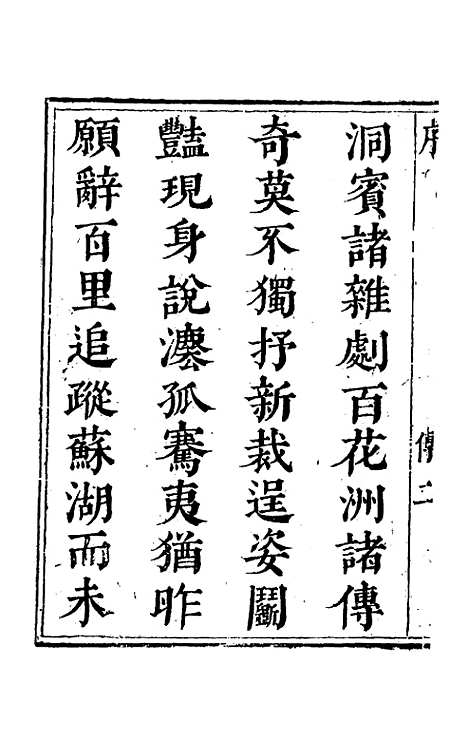 洞賓諸雜劇百花洲諸傳
奇莫不獨抒新裁逞姿鬭
豔現身說灋孤騫夷猶昨
願辭百里追蹤蘇湖而未